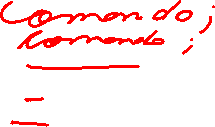 Comando;
Comando;